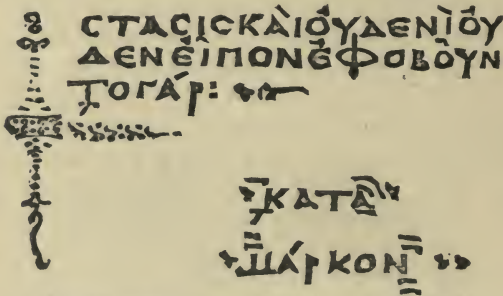 ϹΤΑϹΙϹΚΑῚΟΥ̓ΔΕΝῚΟΥ̓
ΔΕΝΕἾΠΟΝἘΦΟΒΟΥ͂Ν
ΤΟΓΆΡ:
ΚΑΤΑ
ΜΆΡΚΟΝ